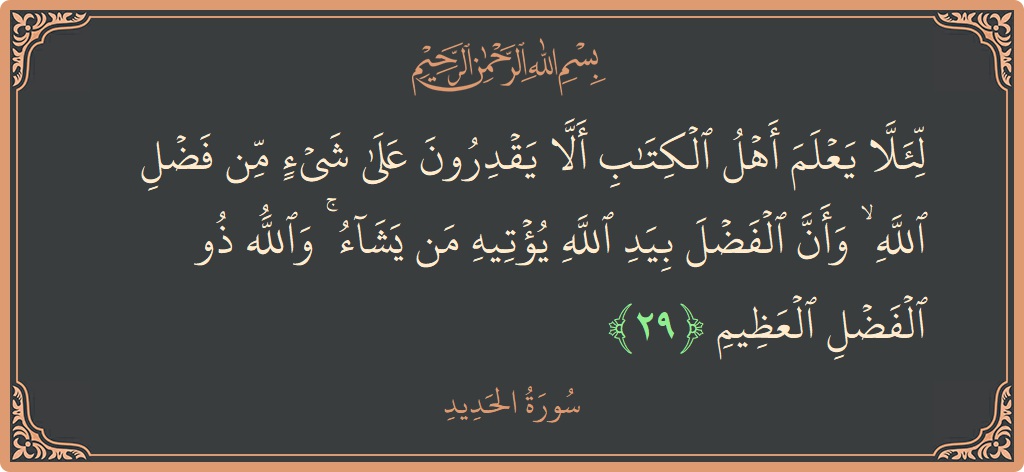 بِسْمِ اللَّهِ الرَّحْمَٰنِ الرَّحِيمِ
لِّئَلَّا يَعْلَمَ أَهْلُ ٱلْكِتَٰبِ أَلَّا يَقْدِرُونَ عَلَىٰ شَىْءٍ مِّن فَضْلِ
ٱللَّهِ ۙ وَأَنَّ ٱلْفَضْلَ بِيَدِ ٱللَّهِ يُؤْتِيهِ مَن يَشَآءُ ۚ وَٱللَّهُ ذُو
ٱلْفَضْلِ ٱلْعَظِيمِ ﴿٢٩﴾
سُورَةُ الحَدِيدِ